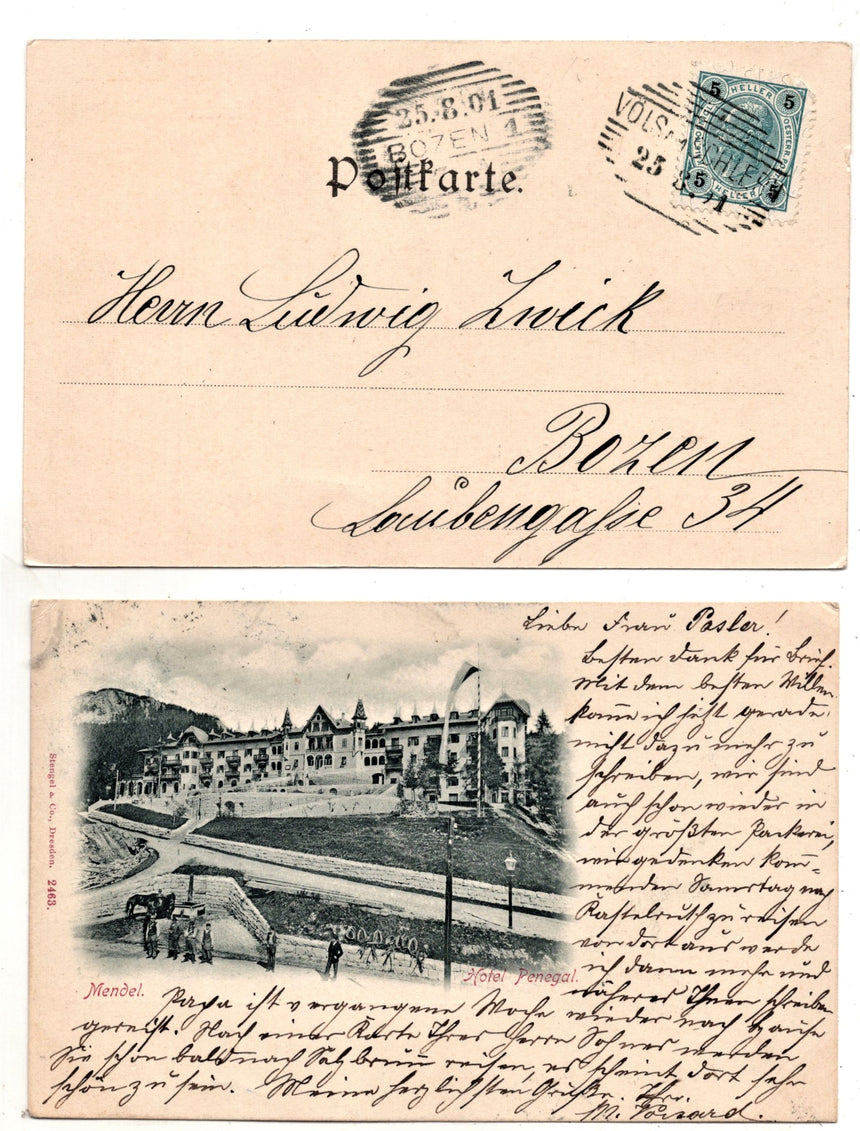 Postkarte.
25.8.01
BOZEN 1
25 8. 01
5 HELLER 5
5 HELLER 5
Herrn Ludwig Zweick
Bozen
Laubengasse 34
Liebe Frau Pasler!
Besten Dank für Brief.
Mit dem besten Willen
komme ich jetzt gerade
nicht dazu mehr zu
schreiben, wir sind
auch schon wieder in
der größten Packerei,
wir gedenken kom-
menden Samstag nach
Kastelruth zu reisen
von dort aus werde
ich dann mehr und
näheres Ihnen schreiben
Papa ist vergangene Woche wieder nach Hause
gereist. Nach einer Karte Ihres Herrn Sohnes werden
Sie schon bald nach Salzbrunn reisen, es scheint dort sehr
schön zu sein. Meine herzlichsten Grüße. Ihre
M.
Mendel.
Hotel Penegal.
Stengel & Co., Dresden. 2463.